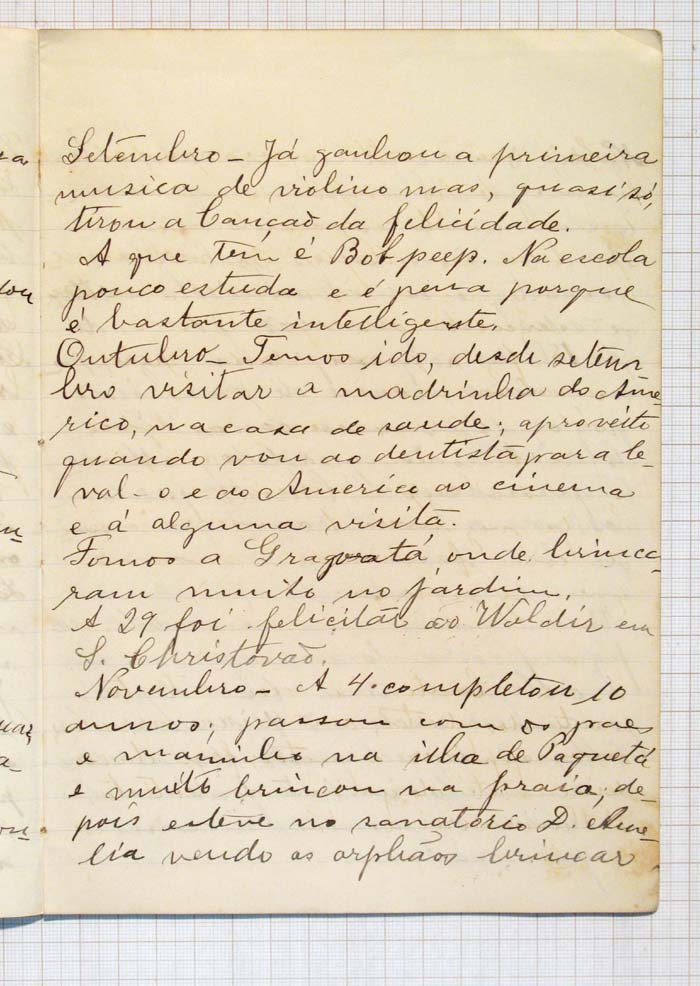 Setembro - Já ganhou a primeira
musica de violino mas, quasi só,
tirou a Canção da felicidade.
A que tem é Bob peep. Na escola
pouco estuda e é pena porque
é bastante intelligente.
Outubro - Temos ido, desde setem
bro visitar a madrinha do Ame-
rico, na casa de saude; aproveito
quando vou ao dentista para le-
val-o e ao Americo ao cinema
e á alguma visita.
Fomos a Gragoatá onde brinca-
ram muito no jardim.
A 29 foi felicitar ao Waldir em
S. Christovão.
Novembro - A 4 completou 10
annos; passou com os paes
e maninho na ilha de Paquetá
e muito brincou na praia; de-
pois esteve no sanatório D. Ame-
lia vendo os orphãos brincar